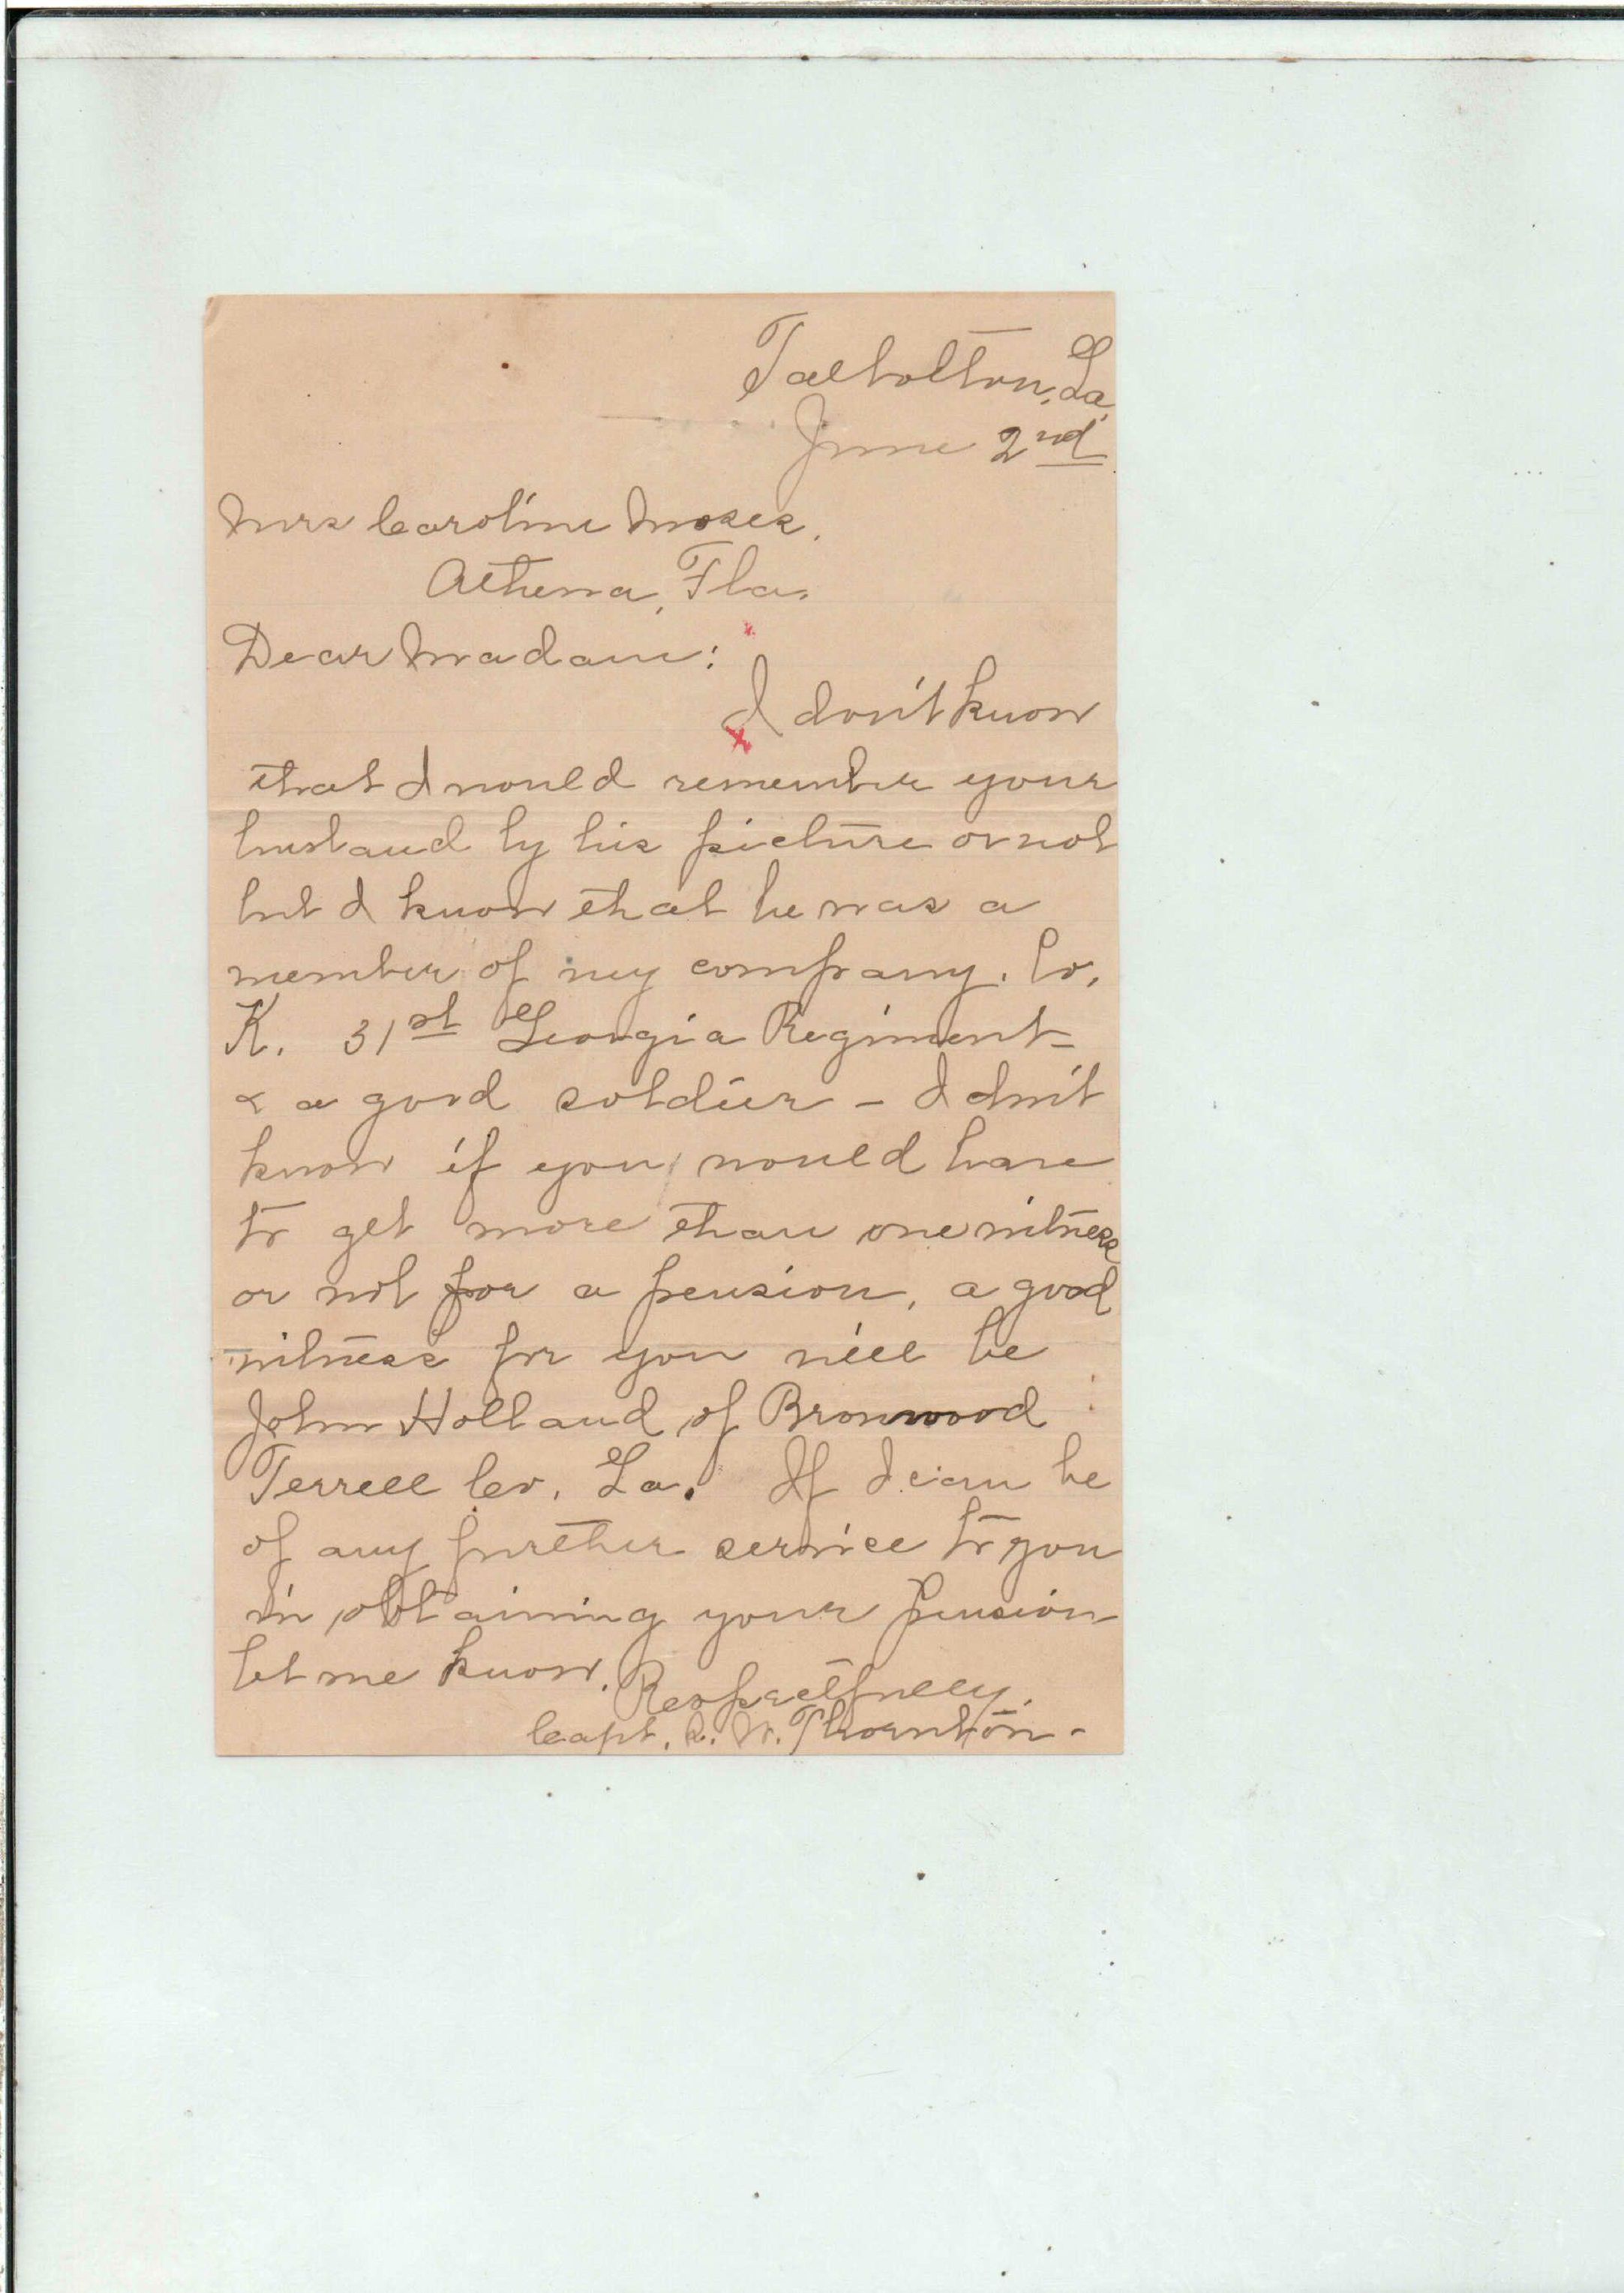 Talbotton, Ga.
June 2nd
Mrs Caroline Moses,
Athena, Fla.
Dear Madam:
I don't know
that I would remember your
husband by his picture or not
but I know that he was a
member of my company. Co.
K. 31st Georgia Regiment -
& a good soldier - I don't
know if you would have
to get more than one witness
or not for a pension, a good
witness for you will be
John Holland of Bronwood
Terrell Co. Ga. If I can be
of any further service to you
in obtaining your pension
let me know.
Respectfully,
Capt. S. W. Thornton -